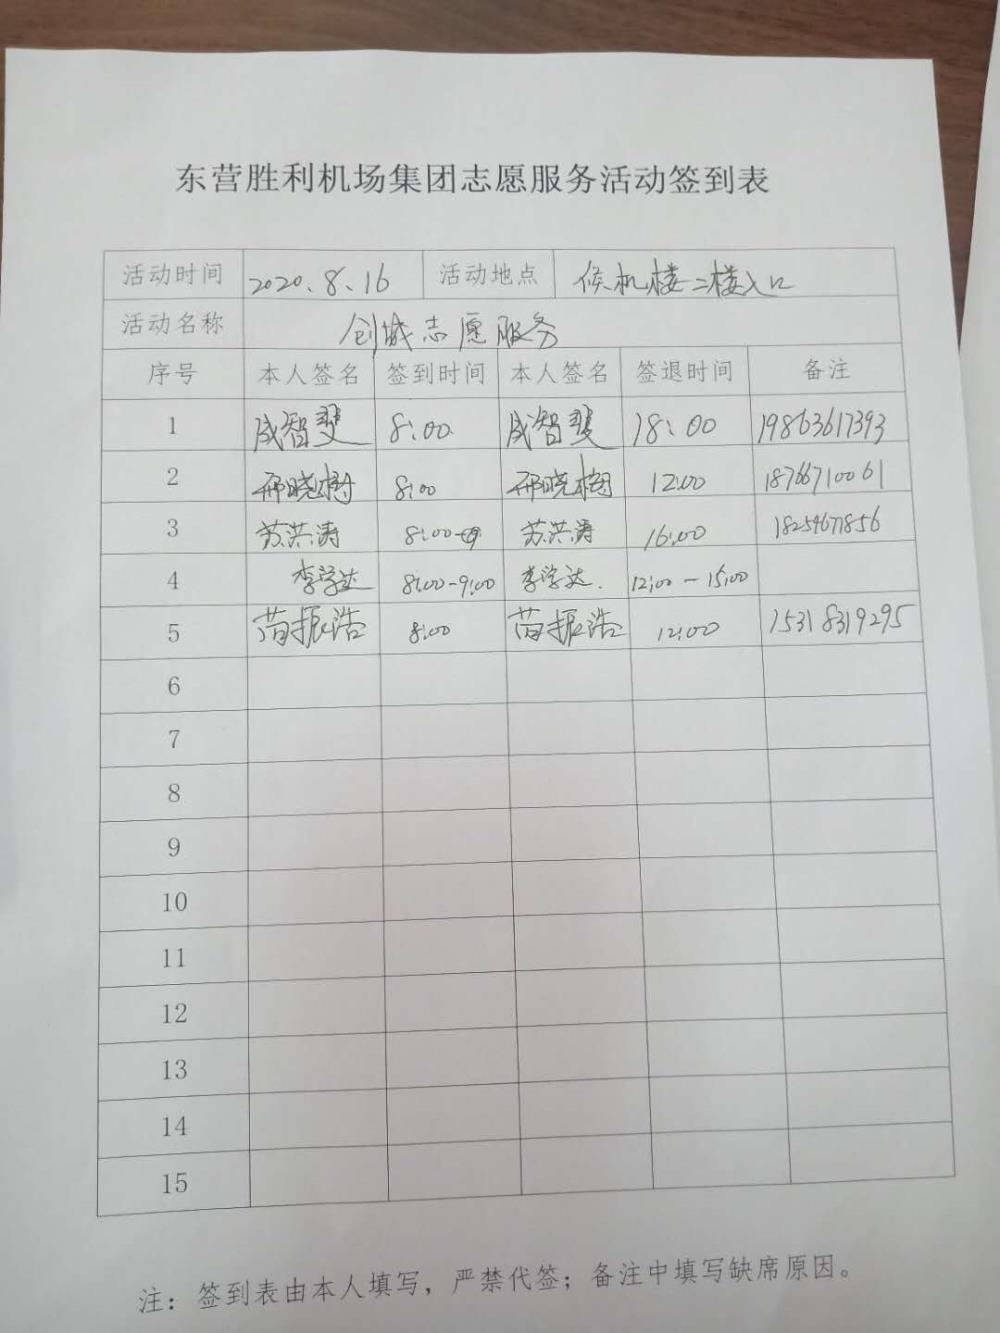 东营胜利机场集团志愿服务活动签到表
活动时间 2020.8.16 活动地点 候机楼二楼入口
活动名称 创城志愿服务
序号 本人签名 签到时间 本人签名 签退时间 备注
1 成智斐 8:00 成智斐 18:00 19863617393
2 邢晓樹 8:00 邢晓樹 12:00 18766710061
3 苏洪涛 8:00 苏洪涛 16:00 18254671856
4 李学达 8:00-9:00 李学达. 12:00-15:00
5 苗振浩 8:00 苗振浩 12:00 15318319295
6
7
8
9
10
11
12
13
14
15
注：签到表由本人填写，严禁代签；备注中填写缺席原因。